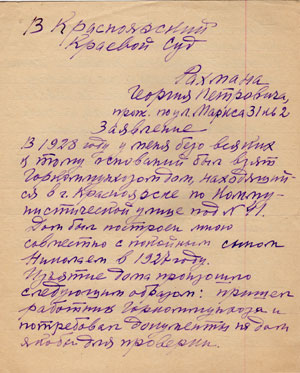 В Красноярский
Краевой Суд
Рахмана
Георгия Петровича,
прож. по ул. Маркса 31 кв 2
Заявление
В 1928 году у меня безо всяких
к тому оснований был взят
Горкомунхозом дом, находящий
ся в г. Красноярске по Комму-
нистической улице под №
Дом был построен мною
совместно с покойным сыном
Николаем в 1927 году.
Изъятие дома произошло
следующим образом: пришел
работник Горкомунхоза и
потребовал документы на дом
якобы для проверки.